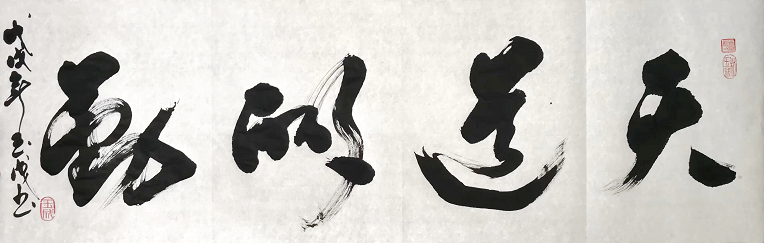 天道酬勤
戊戌年玉成书